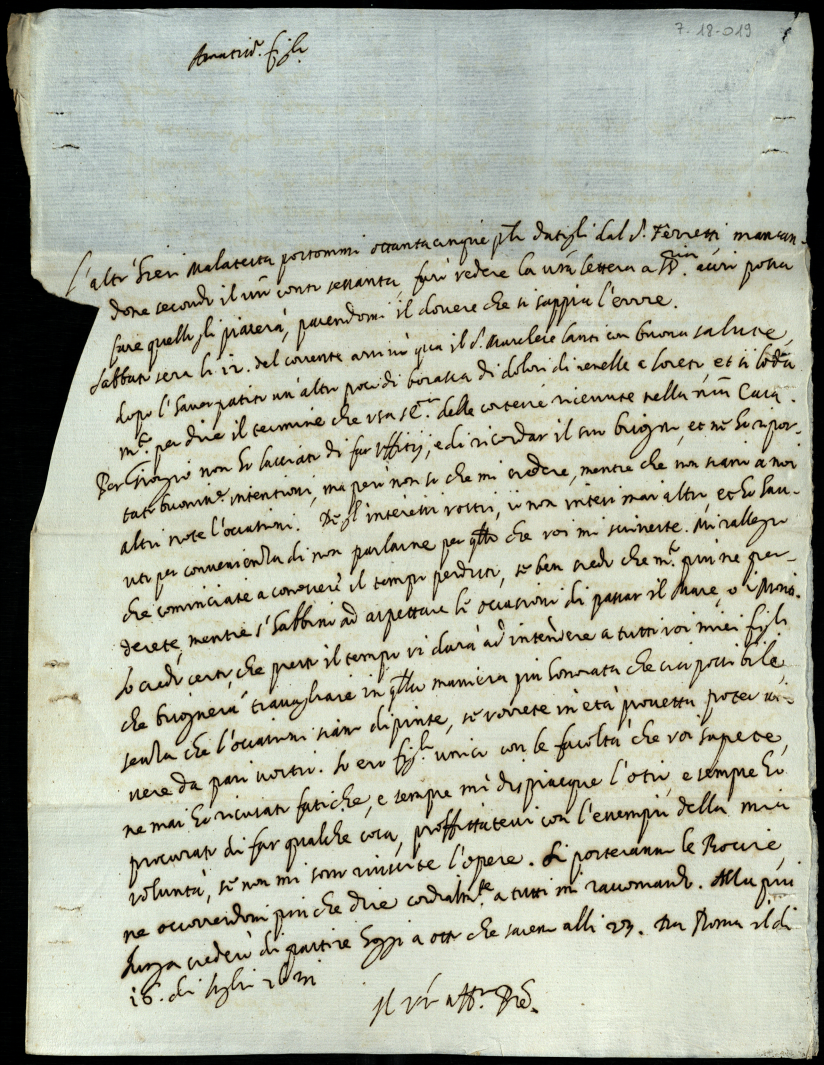 7-18-019
Amatiss. figli
L'altr'hieri Malatesta portommi ottantacinque datigli dal S. Ferretti mancan-
done secondo il conto settanta, farò vedere la vra lettera a acciò possa
fare quello gli piacerà, parendomi il dovere che si sappia l'errore.
Sabbato sera li 12. del corrente arrivò qua il S. Marchese Santi con buona salute,
dopo l'haver patito un'altro poco di borasca di dolori di renelle a Loreto, et si loda
m.to per dire il termine che usa S.E. delle cortesie ricevute nella nra Casa.
Per Giorgio non ho lasciato di far uffitij, e di ricordar il suo bisogno, et ne ho ripor-
tate buoniss.e intentioni, ma però non so che mi credere, mentre che non siano a noi
altri note l'occasioni. Degl'interessi vostri, io non intesi mai altro, et ho hau-
uto per convenienza di non parlarne per qllo che voi mi scriveste. Mi rallegro
che cominciate a conoscere il tempo perduto, se ben credo che m.to più ne per-
derete, mentre s'habbino ad aspettare le occasioni di passar il Mare, o i Monti.
Io credo certo, che presto il tempo vi darà ad intendere a tutti voi miei figli
che bisognerà travagliare in qlla maniera più honorata che sia possibile,
senza che l'occasioni siano dipinte, se vorrete in età provetta poter vi-
vere da pari vostri. Io ero figlo unico con le facoltà che voi sapete,
ne mai ho ricusato fatiche, e sempre mi dispiacque l'otio, e sempre ho
procurato di far qualche cosa, proffittatevi con l'essempio della mia
volontà, se non mi sono riuscite l'opere. Si porteranno le Rocchie,
ne occorrendomi più che dire cordialm.te a tutti mi raccomando. Alla più
lunga crederò di partire hoggi a otto che saremo alli 23. Da Roma il dì
16. di luglio
Il vro aff.mo Pre.